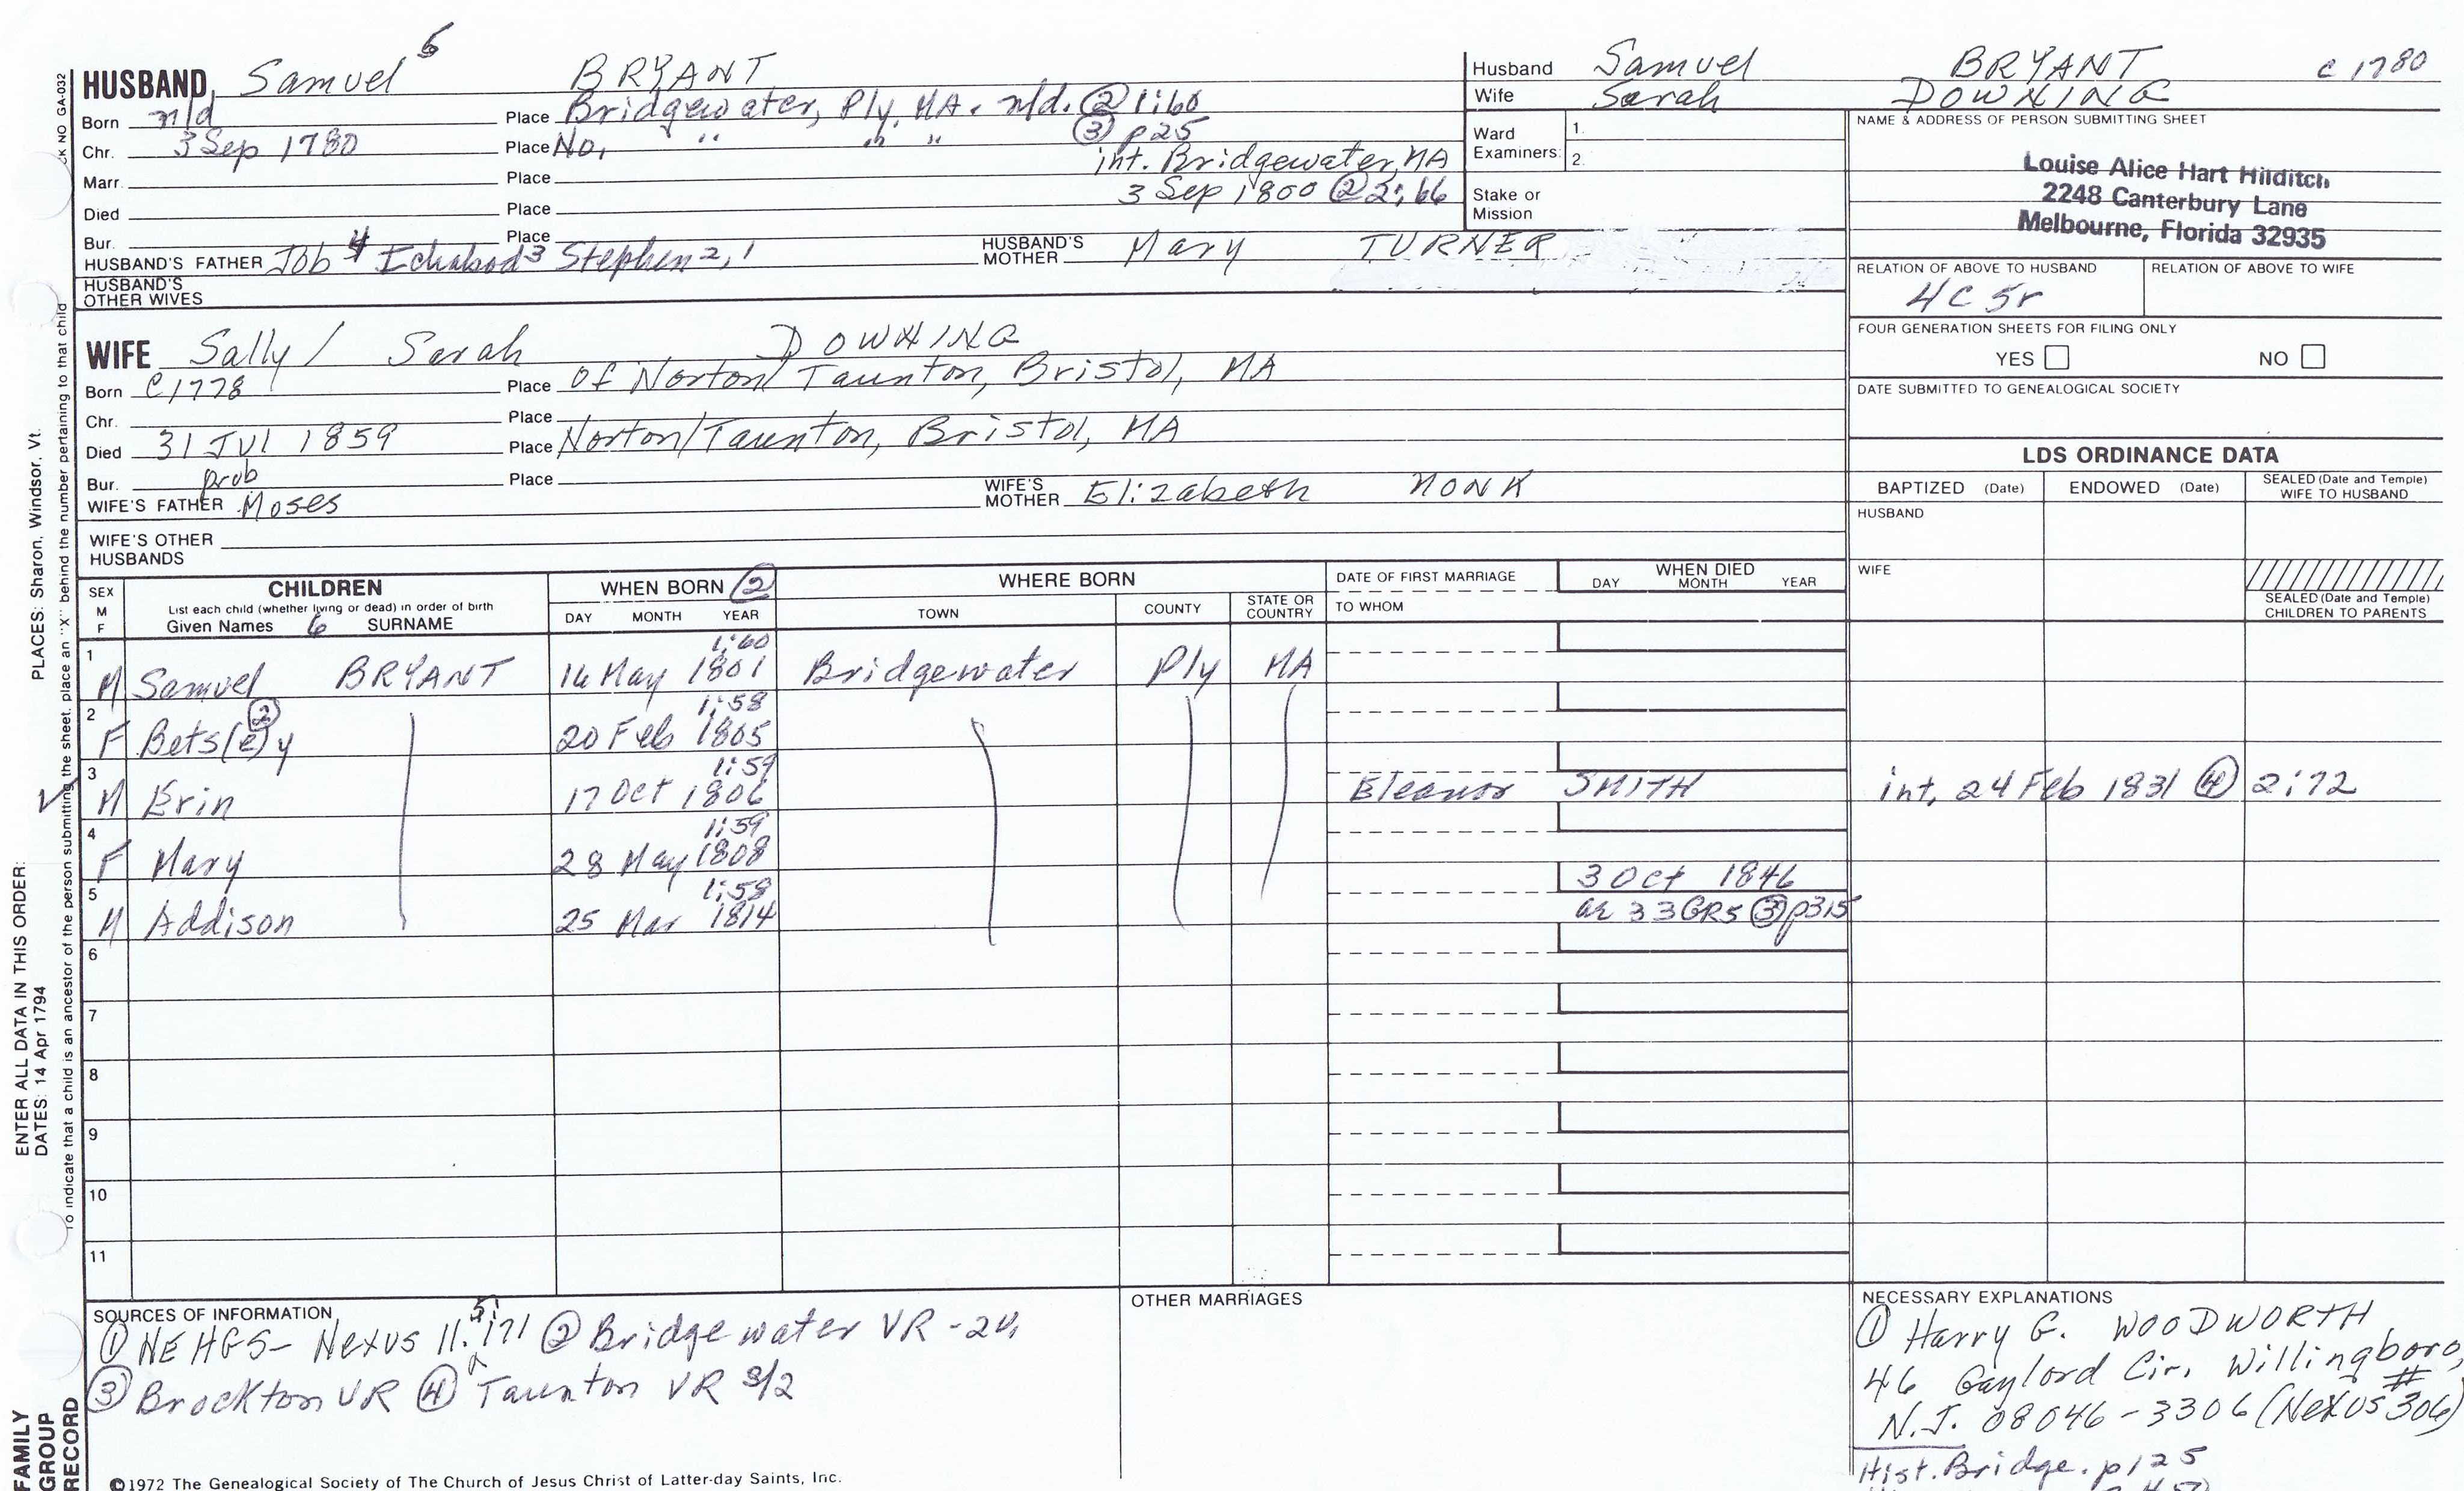 HUSBAND Samuel 5 BRYANT
Born n/d Place Bridgewater, Ply, MA. n/d. ② 1:60
Chr. 3 Sep 1780 Place No, " " " ③ p25
Marr. Place int. Bridgewater, MA
Died Place 3 Sep 1800 ② 2:66
Bur. Place
HUSBAND'S FATHER Job 4 Ichabod 3 Stephen 2, 1 HUSBAND'S MOTHER Mary TURNER
HUSBAND'S OTHER WIVES
WIFE Sally / Sarah DOWNING
Born C1778 Place Of Norton/Taunton, Bristol, MA
Chr. Place
Died 31 Jul 1859 Place Norton/Taunton, Bristol, MA
Bur. Place
WIFE'S FATHER prob Moses WIFE'S MOTHER Elizabeth MONK
WIFE'S OTHER HUSBANDS
Husband Samuel BRYANT c 1780
Wife Sarah DOWNING
Ward Examiners: 1.
2.
Stake or Mission
NAME & ADDRESS OF PERSON SUBMITTING SHEET
Louise Alice Hart Hilditch
2248 Canterbury Lane
Melbourne, Florida 32935
RELATION OF ABOVE TO HUSBAND RELATION OF ABOVE TO WIFE
4C 5r
FOUR GENERATION SHEETS FOR FILING ONLY
YES NO
DATE SUBMITTED TO GENEALOGICAL SOCIETY
LDS ORDINANCE DATA
BAPTIZED (Date) ENDOWED (Date) SEALED (Date and Temple) WIFE TO HUSBAND
HUSBAND
WIFE
SEALED (Date and Temple) CHILDREN TO PARENTS
SEX M F CHILDREN WHEN BORN ② WHERE BORN DATE OF FIRST MARRIAGE WHEN DIED
List each child (whether living or dead) in order of birth
Given Names 6 SURNAME DAY MONTH YEAR TOWN COUNTY STATE OR COUNTRY TO WHOM DAY MONTH YEAR
1 1:60
M Samuel BRYANT 14 May 1801 Bridgewater Ply MA
2 ② 1:58
F Bets(e)y 20 Feb 1805
3 1:59
M Erin 17 Oct 1806 Eleanor SMITH int, 24 Feb 1831 ④ 2:72
4 1:59
F Mary 28 May 1808
5 1:58 3 Oct 1846
M Addison 25 Mar 1814 ae 33 GR5 ③ p315
6
7
8
9
10
11
SOURCES OF INFORMATION
① NEHGS- Nexus 11.5:171 ② Bridgewater VR -2v,
③ Brockton VR ④ Taunton VR
OTHER MARRIAGES
NECESSARY EXPLANATIONS
① Harry G. WOODWORTH
46 Gaylord Cir, Willingboro,
N.J. 08046-3306 (Nexus # 306)
Hist. Bridge. p125
©1972 The Genealogical Society of The Church of Jesus Christ of Latter-day Saints, Inc.
FAMILY
GROUP
RECORD
ENTER ALL DATA IN THIS ORDER:
DATES: 14 Apr 1794 PLACES: Sharon, Windsor, Vt.
To indicate that a child is an ancestor of the person submitting the sheet, place an "X" behind the number pertaining to that child
CK NO GA-032